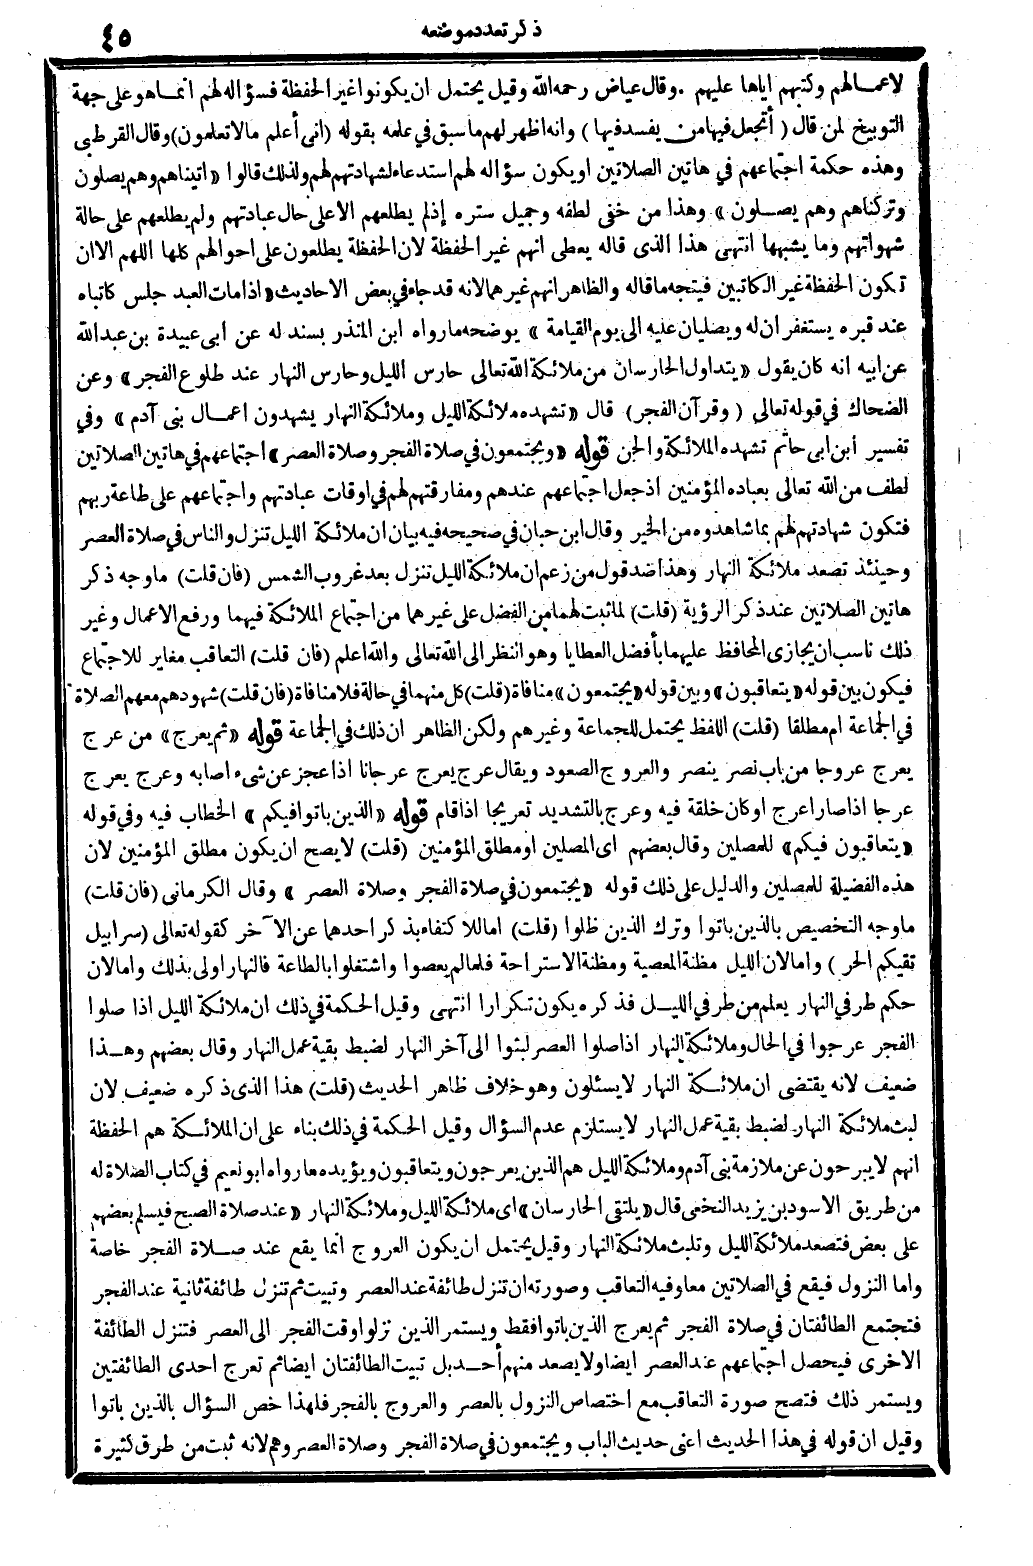 ذكر تعدد موضعه
٤٥
لاعمالهم وكتبهم اياها عليهم . وقال عياض رحمه الله وقيل يحتمل ان يكونوا غير الحفظة فسؤاله لهم انما هو على جهة
التوبيخ لمن قال ( أتجعل فيها من يفسد فيها ) وانه اظهر لهم ما سبق في علمه بقوله (انى أعلم مالا تعلمون) وقال القرطبى
وهذه حكمة اجتماعهم في هاتين الصلاتين او يكون سؤاله لهم استدعاء لشهادتهم لهم ولذلك قالوا « اتيناهم وهم يصلون
وتركناهم وهم يصلون » وهذا من خفى لطفه وجميل ستره إذ لم يطلعهم الا على حال عبادتهم ولم يطلعهم على حالة
شهواتهم وما يشبهها انتهى هذا الذى قاله يعطى انهم غير الحفظة لان الحفظة يطلعون على احوالهم كلها اللهم الا ان
تكون الحفظة غير الكاتبين فيتجه ما قاله والظاهر انهم غيرهما لانه قد جاء في بعض الاحاديث « اذا مات العبد جلس كاتباه
عند قبره يستغفران له ويصليان عليه الى يوم القيامة » يوضحه ما رواه ابن المنذر بسند له عن ابى عبيدة بن عبد الله
عن ابيه انه كان يقول « يتداول الحارسان من ملائكة الله تعالى حارس الليل وحارس النهار عند طلوع الفجر » وعن
الضحاك في قوله تعالى ( وقرآن الفجر) قال « تشهده ملائكة الليل وملائكة النهار يشهدون اعمال بنى آدم » وفي
تفسير ابن ابى حاتم تشهده الملائكة والجن قوله « ويجتمعون في صلاة الفجر وصلاة العصر » اجتماعهم في هاتين الصلاتين
لطف من الله تعالى بعباده المؤمنين اذ جعل اجتماعهم عندهم ومفارقتهم لهم في اوقات عبادتهم واجتماعهم على طاعة ربهم
فتكون شهادتهم لهم بما شاهدوه من الخير وقال ابن حبان في صحيحه فيه بيان ان ملائكة الليل تنزل والناس في صلاة العصر
وحينئذ تصعد ملائكة النهار وهذا ضد قول من زعم ان ملائكة الليل تنزل بعد غروب الشمس (فان قلت) ما وجه ذكر
هاتين الصلاتين عند ذكر الرؤية (قلت) لما ثبت لهما من الفضل على غيرهما من اجتماع الملائكة فيهما ورفع الاعمال وغير
ذلك ناسب ان يجازى المحافظ عليهما بأفضل العطايا وهو النظر الى الله تعالى والله اعلم (فان قلت) التعاقب مغاير للاجتماع
فيكون بين قوله « يتعاقبون » وبين قوله « يجتمعون » منافاة (قلت) كل منهما في حالة فلا منافاة (فان قلت) شهودهم معهم الصلاة
في الجماعة ام مطلقا (قلت) اللفظ يحتمل للجماعة وغيرهم ولكن الظاهر ان ذلك في الجماعة قوله « ثم يعرج » من عرج
يعرج عروجا من باب نصر ينصر والعروج الصعود ويقال عرج يعرج عرجانا اذا عجز عن شىء اصابه وعرج يعرج
عرجا اذا صار اعرج او كان خلقة فيه وعرج بالتشديد تعريجا اذا قام قوله « الذين باتوا فيكم » الخطاب فيه وفي قوله
« يتعاقبون فيكم » للمصلين وقال بعضهم اى المصلين او مطلق المؤمنين (قلت) لا يصح ان يكون مطلق المؤمنين لان
هذه الفضيلة للمصلين والدليل على ذلك قوله « يجتمعون في صلاة الفجر وصلاة العصر » وقال الكرمانى (فان قلت)
ما وجه التخصيص بالذين باتوا وترك الذين ظلوا (قلت) اما للاكتفاء بذكر احدهما عن الآخر كقوله تعالى (سرابيل
تقيكم الحر ) واما لان الليل مظنة المعصية ومظنة الاستراحة فلما لم يعصوا واشتغلوا بالطاعة فالنهار اولى بذلك واما لان
حكم طرفي النهار يعلم من طرفي الليل فذكره يكون تكرارا انتهى وقيل الحكمة في ذلك ان ملائكة الليل اذا صلوا
الفجر عرجوا في الحال وملائكة النهار اذا صلوا العصر لبثوا الى آخر النهار لضبط بقية عمل النهار وقال بعضهم وهذا
ضعيف لانه يقتضى ان ملائكة النهار لا يسئلون وهو خلاف ظاهر الحديث (قلت) هذا الذى ذكره ضعيف لان
لبث ملائكة النهار لضبط بقية عمل النهار لا يستلزم عدم السؤال وقيل الحكمة في ذلك بناء على ان الملائكة هم الحفظة
انهم لا يبرحون عن ملازمة بنى آدم وملائكة الليل هم الذين يعرجون ويتعاقبون ويؤيده ما رواه ابو نعيم في كتاب الصلاة له
من طريق الاسود بن يزيد النخعى قال « يلتقى الحارسان » اى ملائكة الليل وملائكة النهار « عند صلاة الصبح فيسلم بعضهم
على بعض فتصعد ملائكة الليل وتلبث ملائكة النهار وقيل يحتمل ان يكون العروج انما يقع عند صلاة الفجر خاصة
واما النزول فيقع في الصلاتين معا وفيه التعاقب وصورته ان تنزل طائفة عند العصر وتبيت ثم تنزل طائفة ثانية عند الفجر
فتجتمع الطائفتان في صلاة الفجر ثم يعرج الذين باتوا فقط ويستمر الذين نزلوا وقت الفجر الى العصر فتنزل الطائفة
الاخرى فيحصل اجتماعهم عند العصر ايضا ولا يصعد منهم أحد بل تبيت الطائفتان ايضا ثم تعرج احدى الطائفتين
ويستمر ذلك فتصح صورة التعاقب مع اختصاص النزول بالعصر والعروج بالفجر فلهذا خص السؤال بالذين باتوا
وقيل ان قوله في هذا الحديث اعنى حديث الباب ويجتمعون في صلاة الفجر وصلاة العصر وهم لانه ثبت من طرق كثيرة